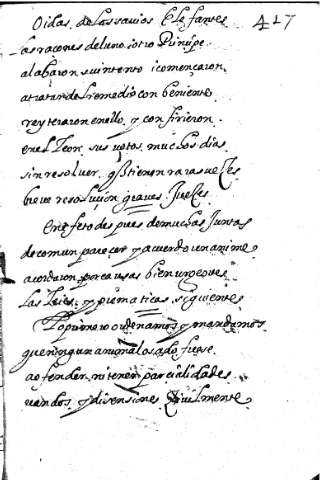 417
Oidas de los savios Elefantes
las raçones del uno i otro Prinçipe
alabaron su intento i començaron
a tratar del remedio con beniente
reyteraron en ello, y confirieron
en el Leon, sus votos, muchos dias
sin resolver, q̃ stienen raras veçes
breve resoluçion graves Jueçes
En efeto despues de muchas Juntas
de comun pareçer y acuerdo unanime
acordaron por causas bien urgentes
las Leies, y prematicas siguientes
Lo primero ordenamos y mandamos
que ningun animal osado fuese
a ofender, ni tener parcialidades
vandos, y disensiones Çivilmente